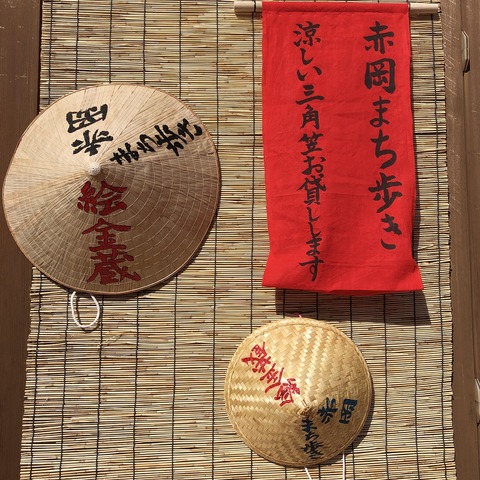 赤岡まち歩き
涼しい三角笠お貸しします
赤岡
まち歩き
絵金蔵
絵金蔵
赤岡
まち歩き